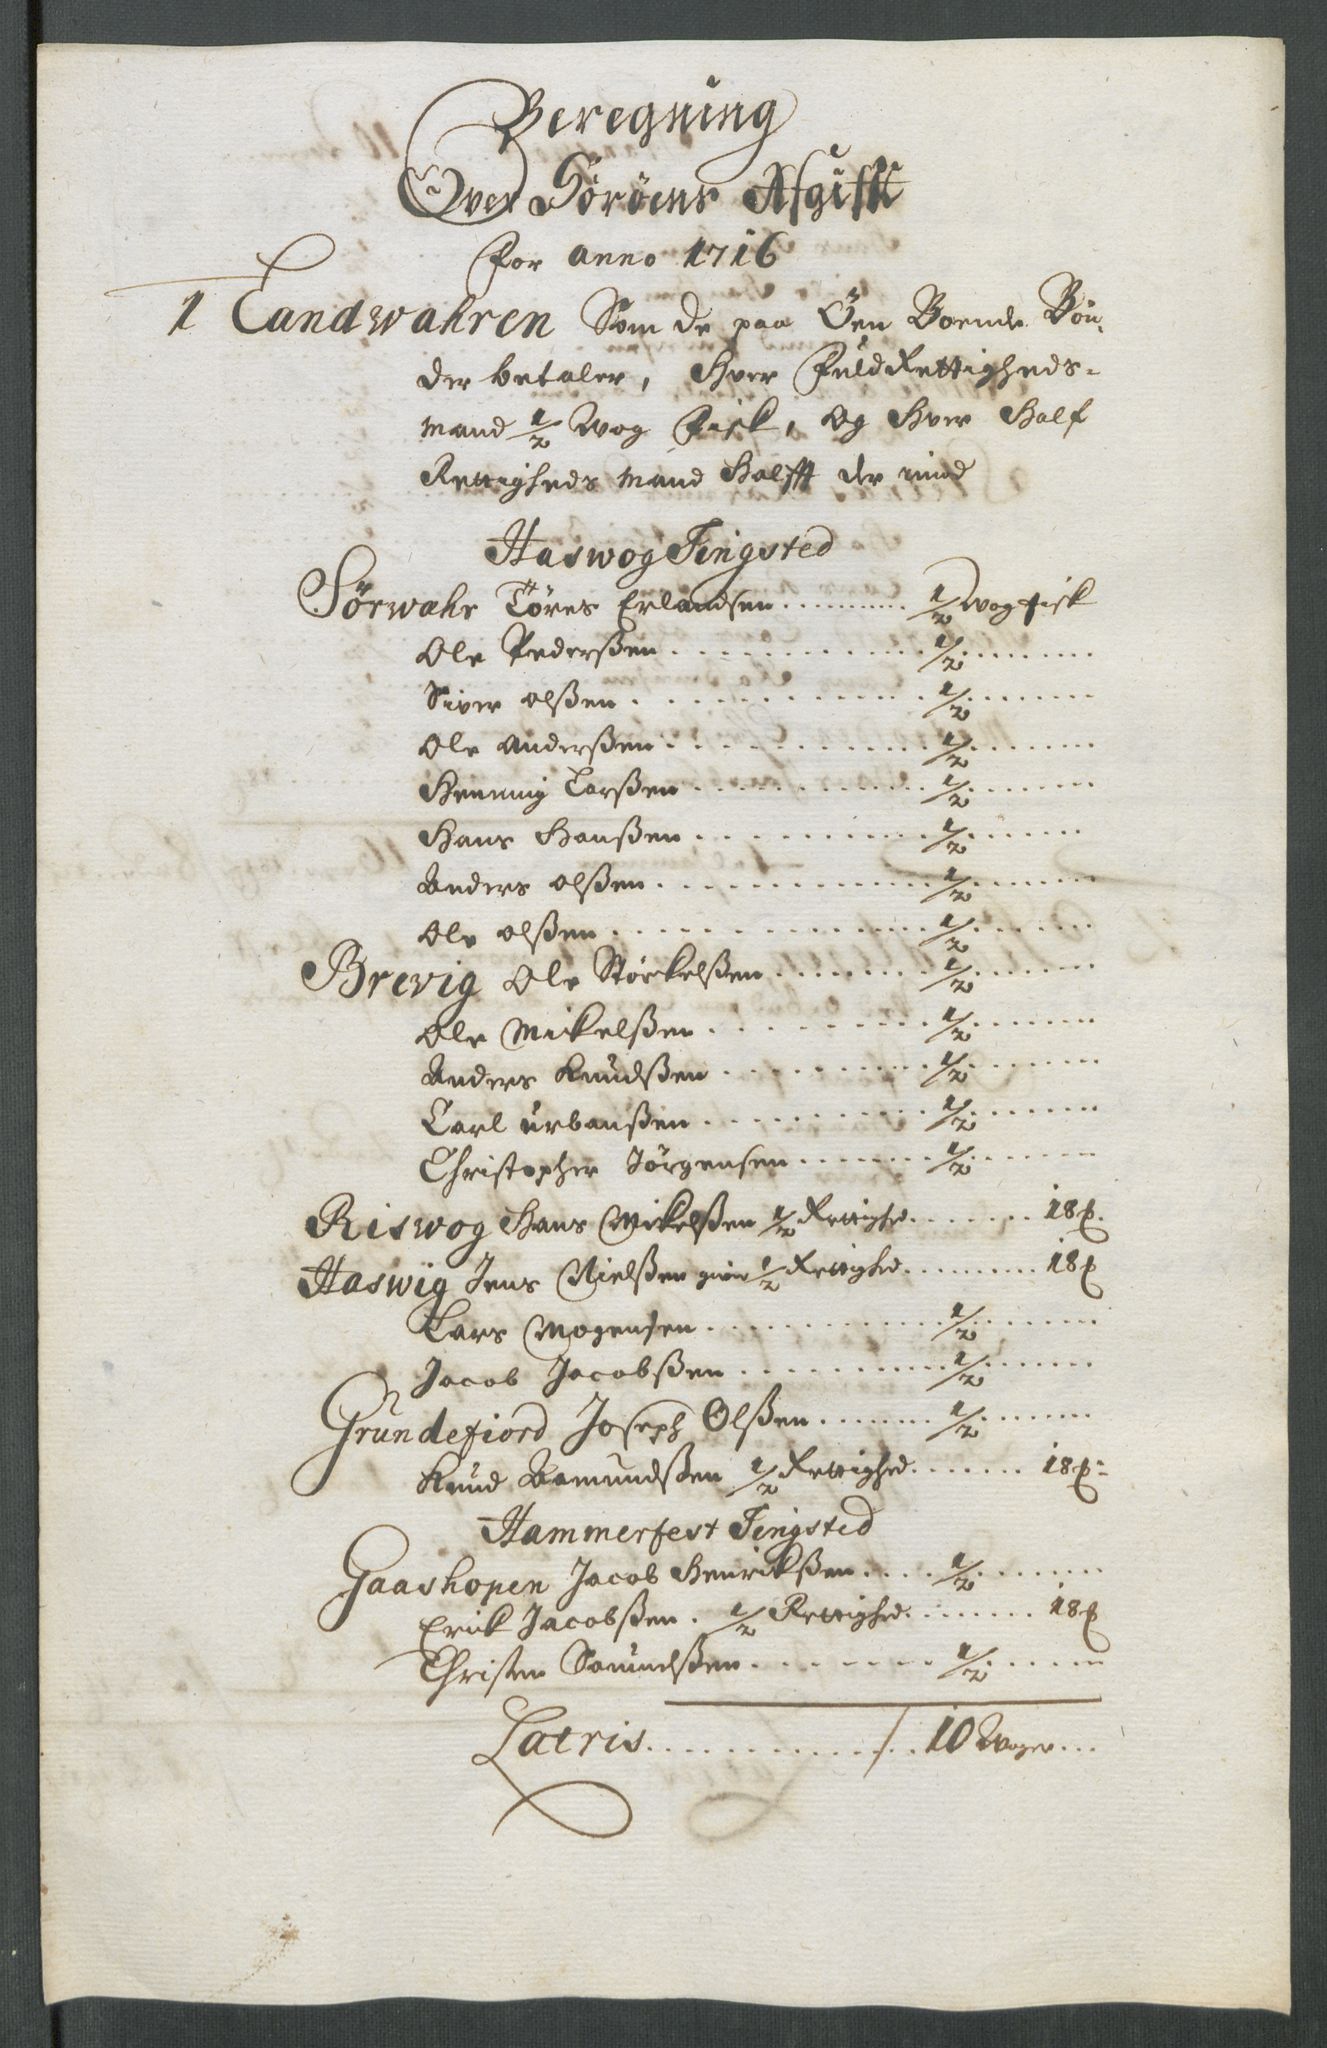 Beregning
Over Söröens Afgifft
for anno 1716
1 Landwahren Som de paa Öen Boende Bön-
der betaler, Hver FuldRettigheds-
mand 1/2 Wog Fisk, og Hver Half
Rettigheds mand Halfft der imod
Haswog Tingsted
Sörwahr Töres Erlandsen ......... 1/2 Wog fisk
Ole Pederßen ......... 1/2 ......
Siver olßen ......... 1/2 ......
Ole Anderßen ......... 1/2 ......
Henning Larßen ......... 1/2 ......
Hans Hanßen ......... 1/2 ......
Anders olßen ......... 1/2 ......
Ole olßen ......... 1/2 ......
Brevig Ole Störckelßen ......... 1/2 ......
Ole Mickelßen ......... 1/2 ......
Anders Knudßen ......... 1/2 ......
Carl urbanßen ......... 1/2 ......
Christopher Jörgensen ......... 1/2 ......
Riswog Hans Mickelßen 1/2 Rettighed ......... 18 ₰.
Haswig Jens Nielßen 1/2 Rettighed ......... 18 ₰
Lars Mogensen ......... 1/2 ......
Jacob Jacobßen ......... 1/2 ......
Grundefiord Joseph Olßen ......... 1/2 ......
Knud Amundßen 1/2 Rettighed ......... 18 ₰.
Hammerfest Tingsted
Gaashopen Jacob Henrikßen ..... 1/2 ......
Erick Jacobßen . 1/2 Rettighed ......... 18 ₰
Christen Samundßen ......... 1/2 ......
Latris ............ / .. 10 Woger ...